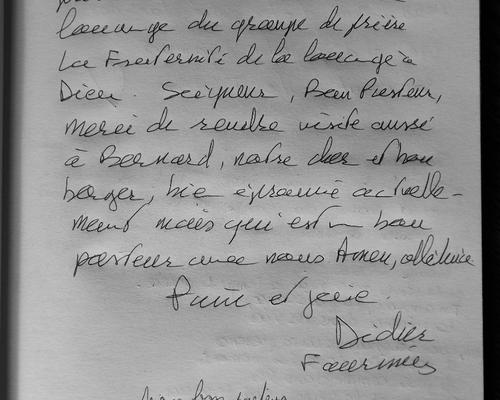 louange du groupe de prière
La Fraternité de la louange à
Dieu. Seigneur, Bon Pasteur,
merci de rendre visite aussi
à Bernard, notre cher et bon
berger, bien éprouvé actuelle-
ment mais qui est un bon
pasteur avec nous Amen, alléluia
Paix et joie.
Didier